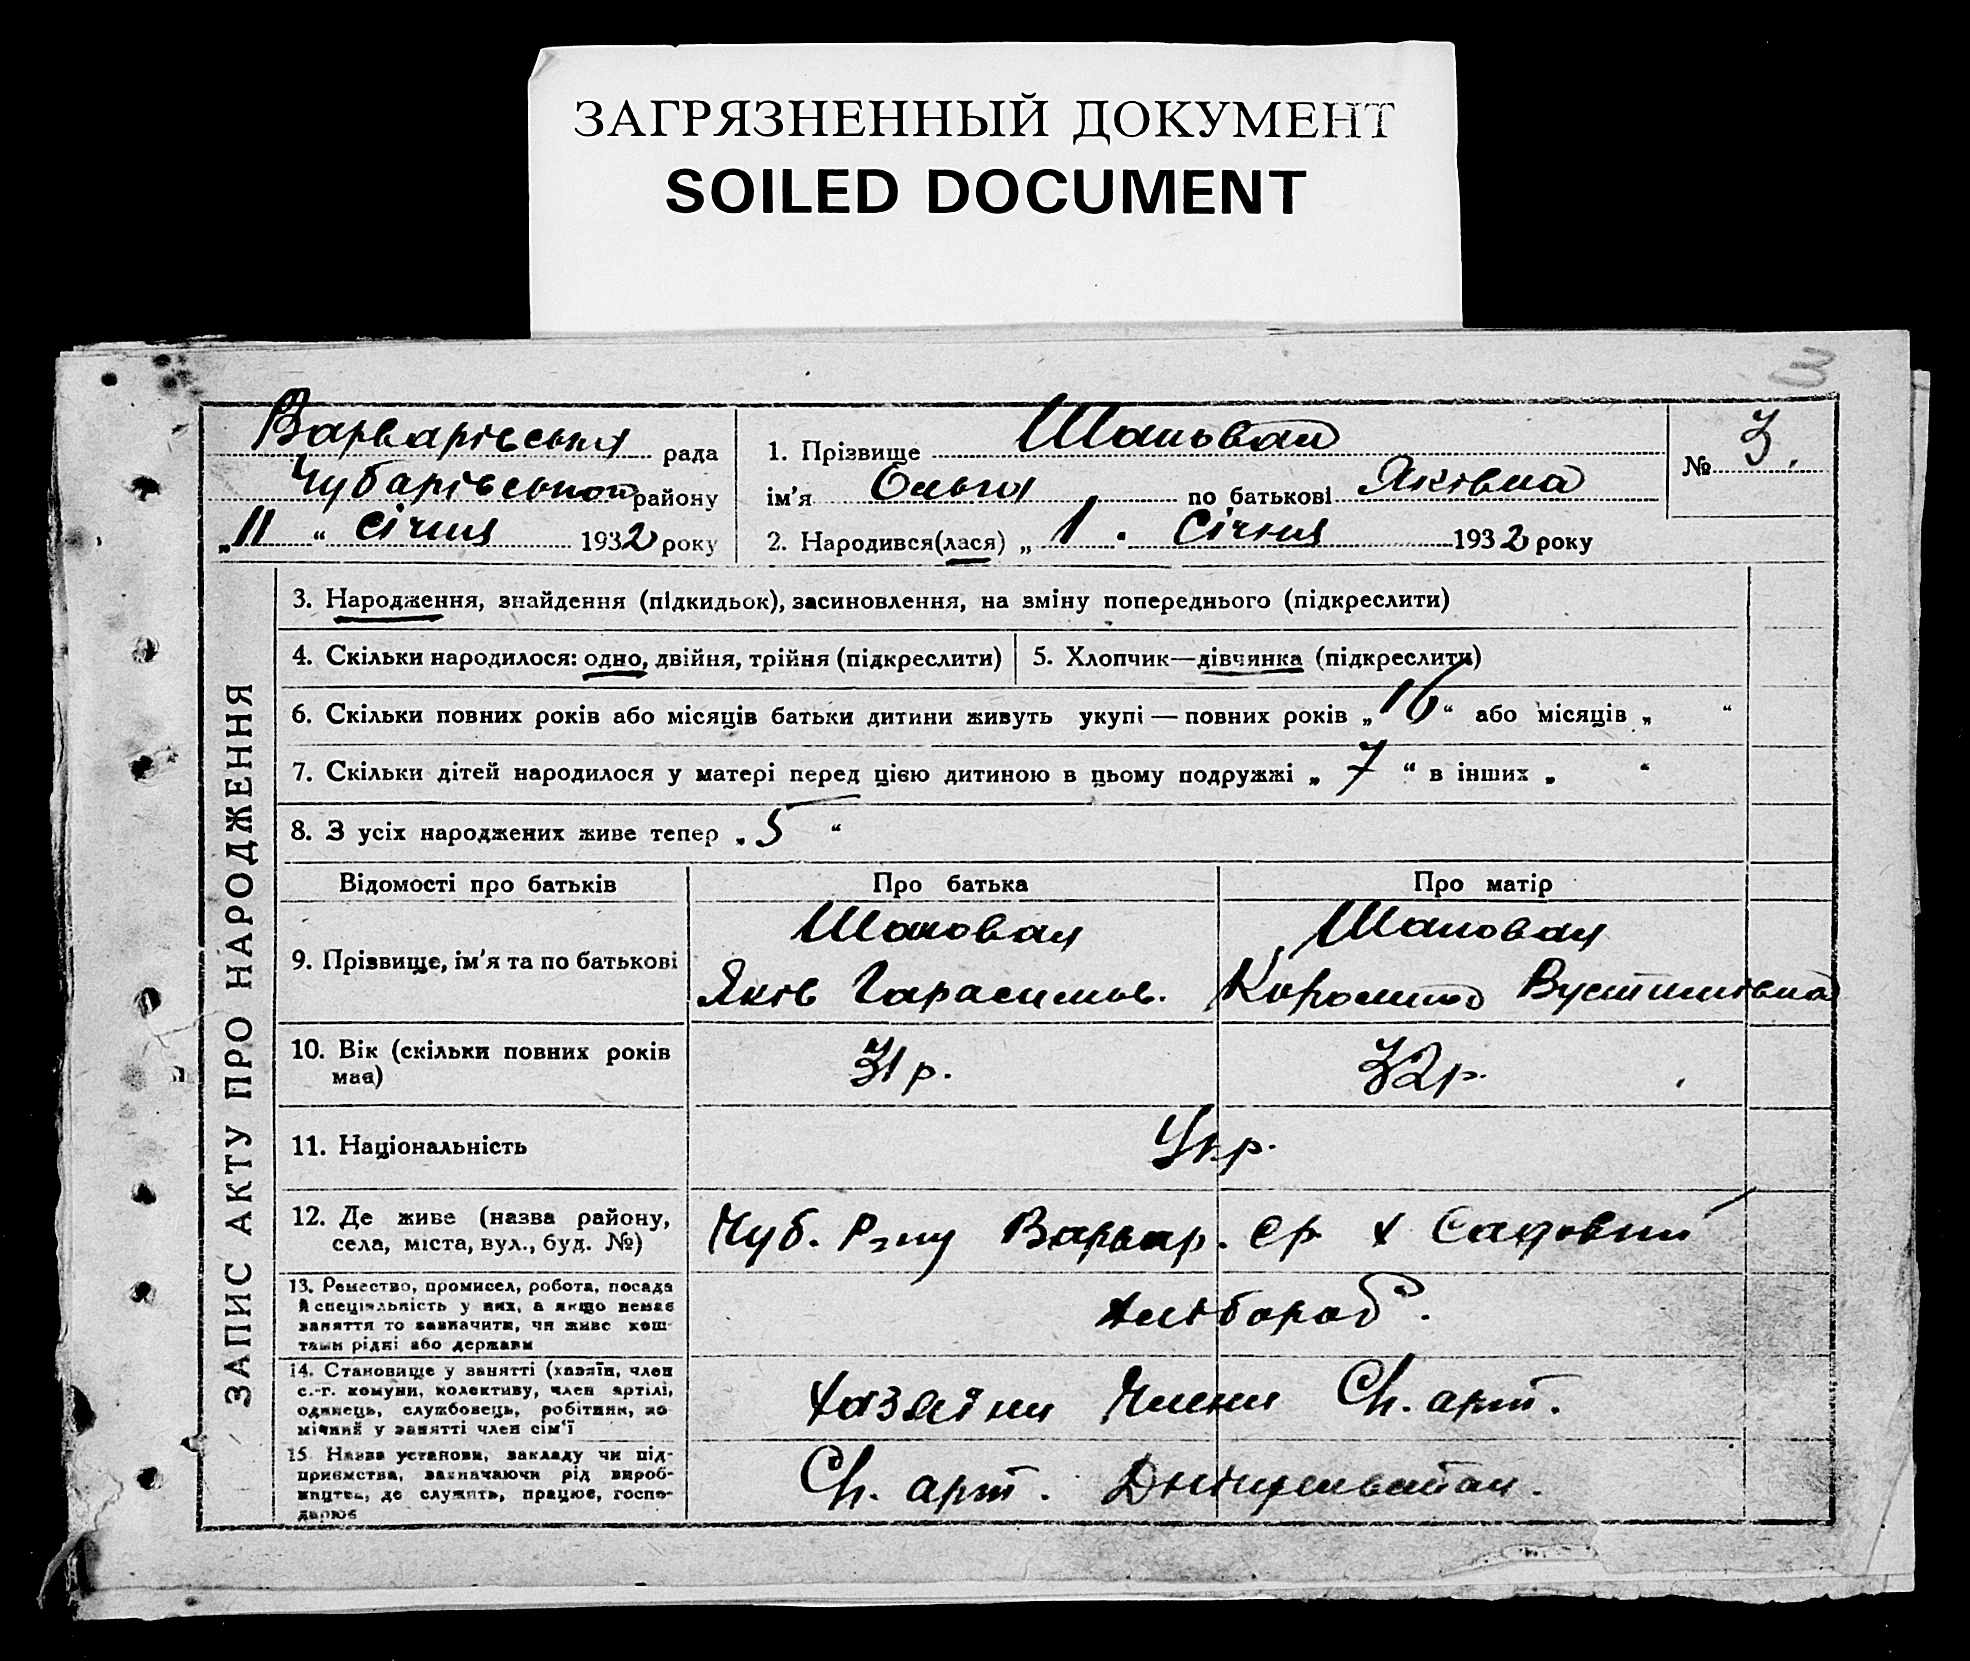 ЗАГРЯЗНЕННЫЙ ДОКУМЕНТ
SOILED DOCUMENT
3
Варварівська рада
Чубарівського району
„11“ січня 1932 року
1. Прізвище Шаповал
ім'я Ольга по батькові Яківна
2. Народився(лася) „1. Січня 1932 року
№ 3.
ЗАПИС АКТУ ПРО НАРОДЖЕННЯ
3. Народження, знайдення (підкидьок), засиновлення, на зміну попереднього (підкреслити)
4. Скільки народилося: одно, двійня, трійня (підкреслити)
5. Хлопчик—дівчинка (підкреслити)
6. Скільки повних років або місяців батьки дитини живуть укупі — повних років „16“ або місяців „ “
7. Скільки дітей народилося у матері перед цією дитиною в цьому подружжі „7“ в інших „ “
8. З усіх народжених живе тепер „5“
Відомості про батьків Про батька Про матір
9. Прізвище, ім'я та по батькові
Шаповал
Яків Гарасимов.
Шаповал
Вустимівна
10. Вік (скільки повних років
має)
31 р.
32 р.
11. Національність
Укр.
12. Де живе (назва району,
села, міста, вул., буд. №)
Чуб. Р-ну Варвар. ср х Садовий
13. Ремество, промисел, робота, посада
й спеціяльність у них, а якщо немає
заняття то зазначити, чи живе кош-
тами рідні або держави
хлібороб.
14. Становище у занятті (хазяїн, член
с.-г. комуни, колективу, член артілі,
одинець, службовець, робітник, по
мічний у занятті член сім'ї
хазяїни Члени Сг. арт.
15 Назва установи, закладу чи під-
приємства, зазначаючи рід вироб-
ництва, де служить, працює, госпо-
дарює
Сг. арт.